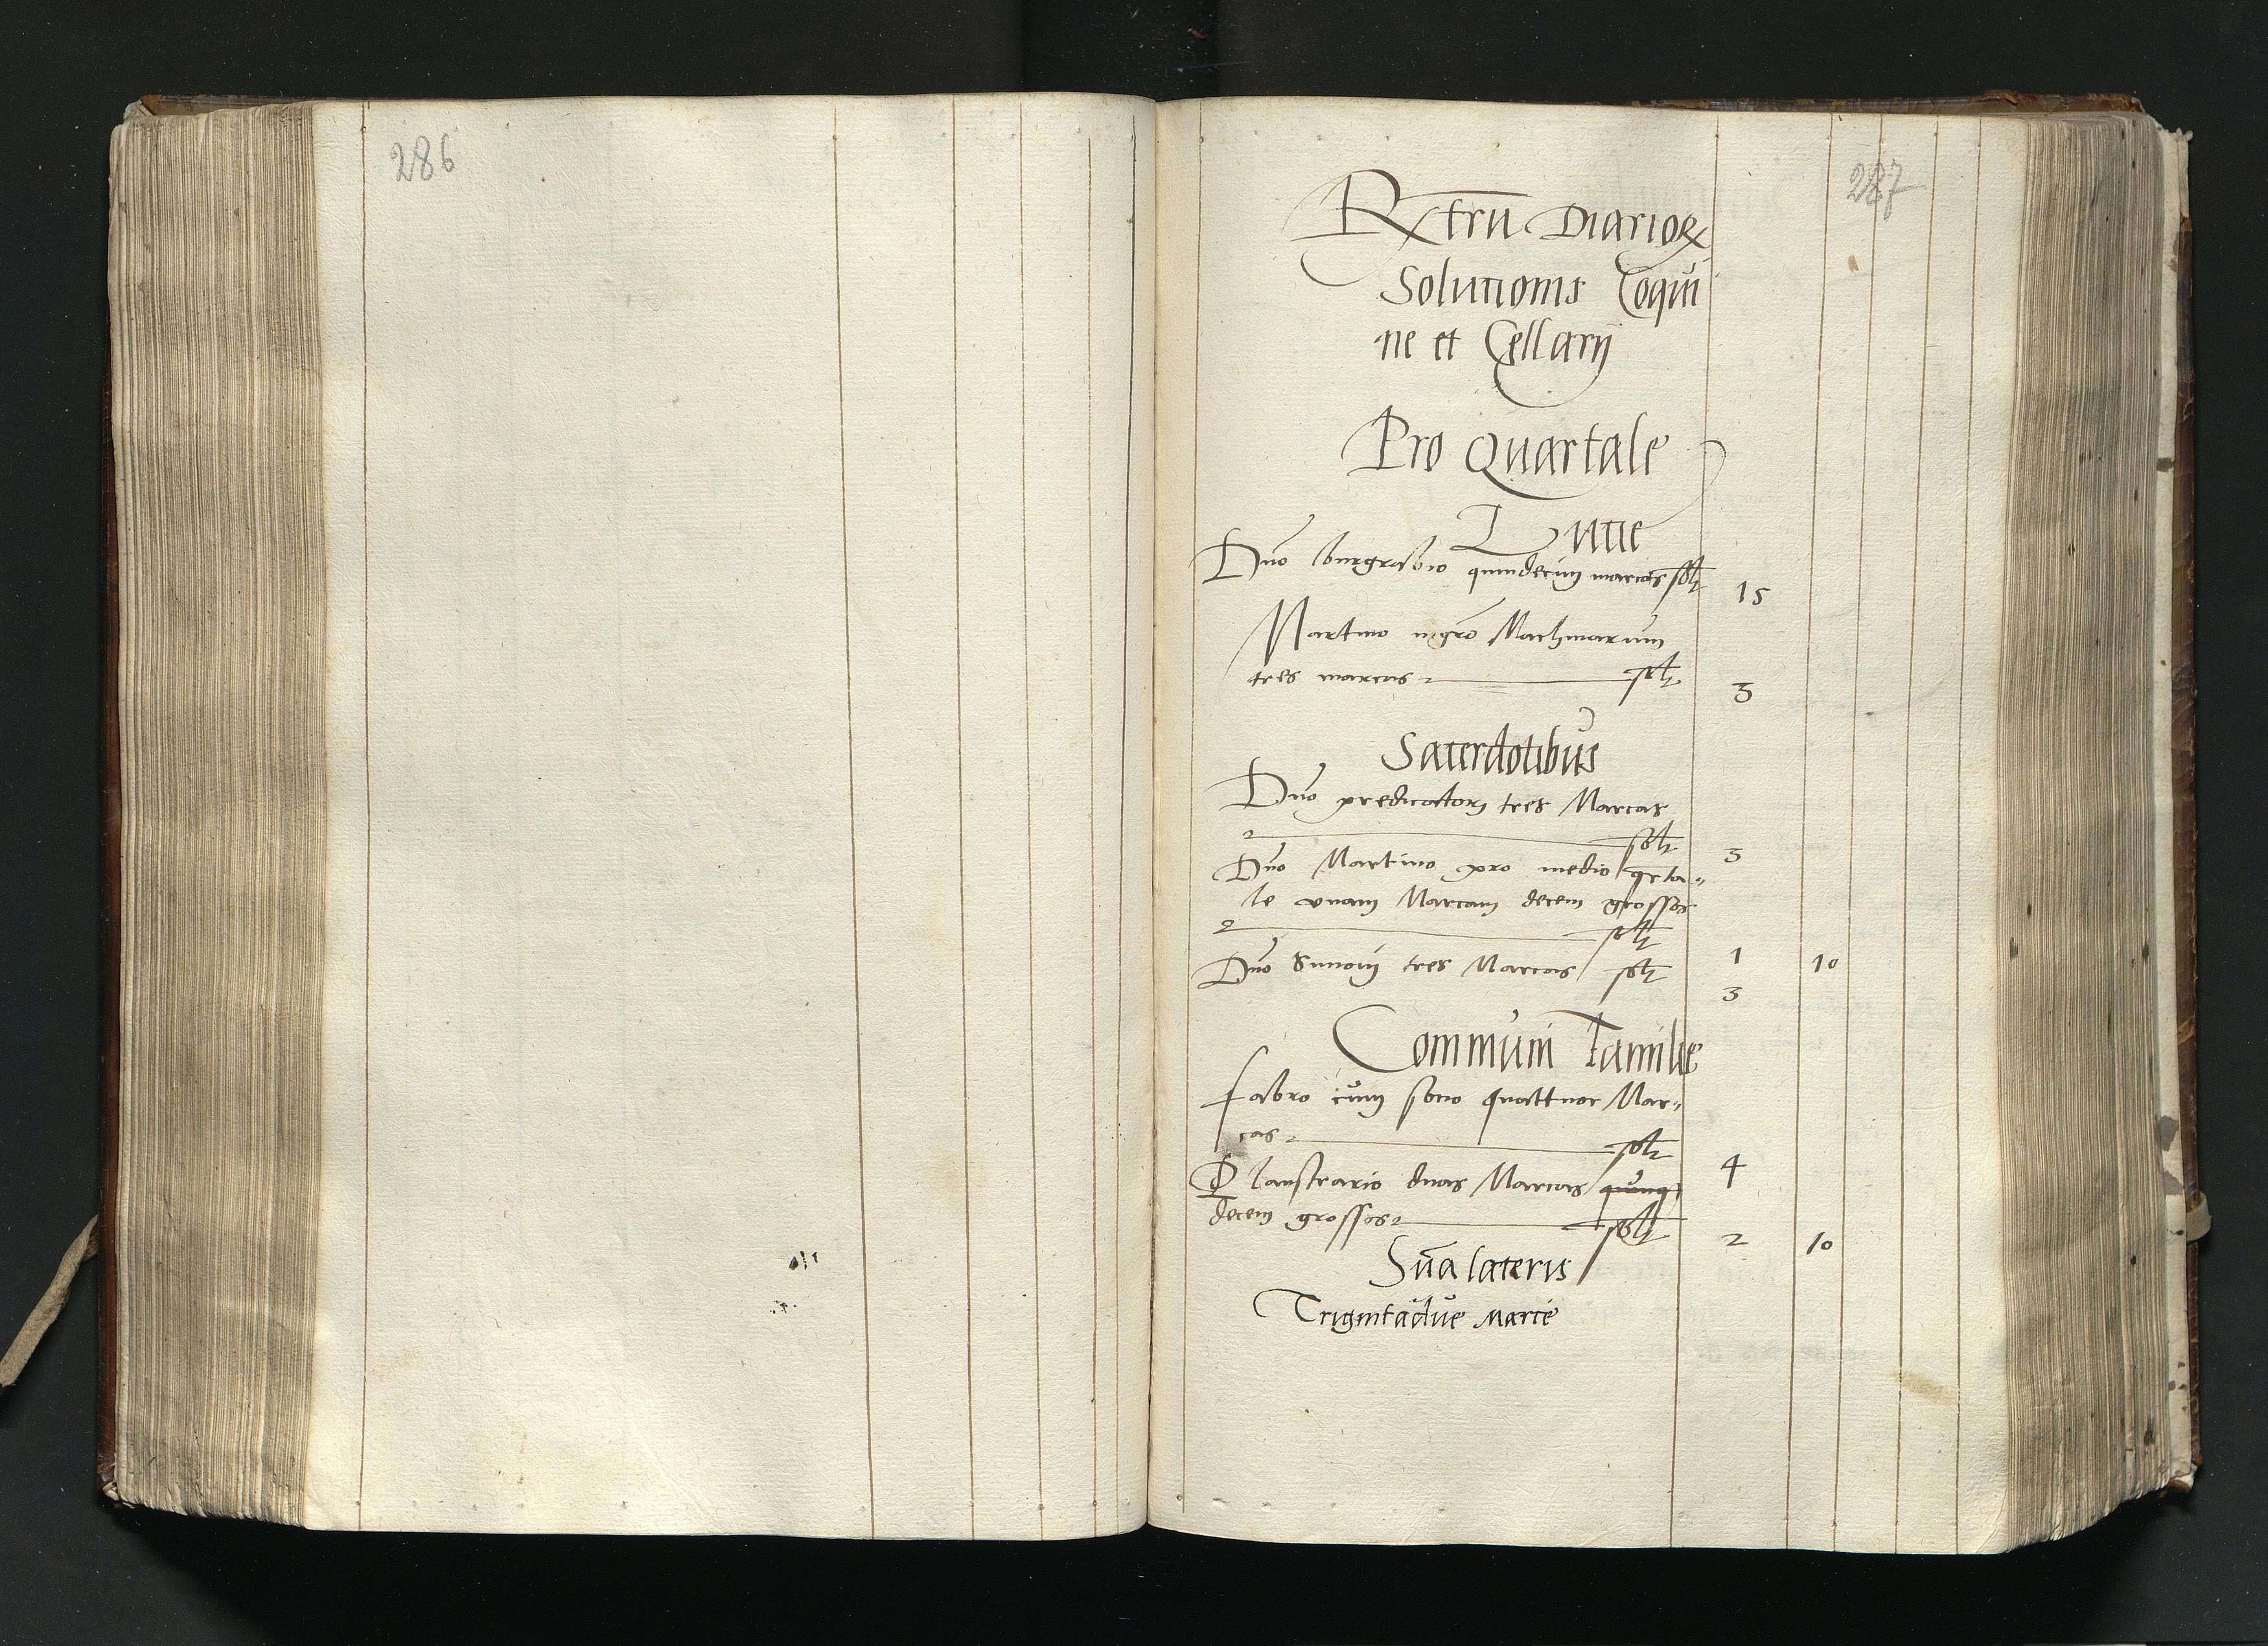 286
287
Rxtrũ Diarioꝝ
Solutionis Coqui
ne et Cellarij
Pro Quartale
Lutie
Dno burgrabio quindecim marcas solt 15
Martino nigro Machinarum
tres marcas solt 3
Sacerdotibus
Dno predicatori tres Marcas
solt 3
Dno Martino pro medio qrta„
le vnam Marcam decem grossos
solt 1 10
Dno Simoni tres Marcas solt 3
Communi Familie
Fabro cum socio quattuor Mar„
cas solt 4
Plaustrario duas Marcas quinq
decem grossos solt 2 10
Sũa lateris
Trigintadue marce